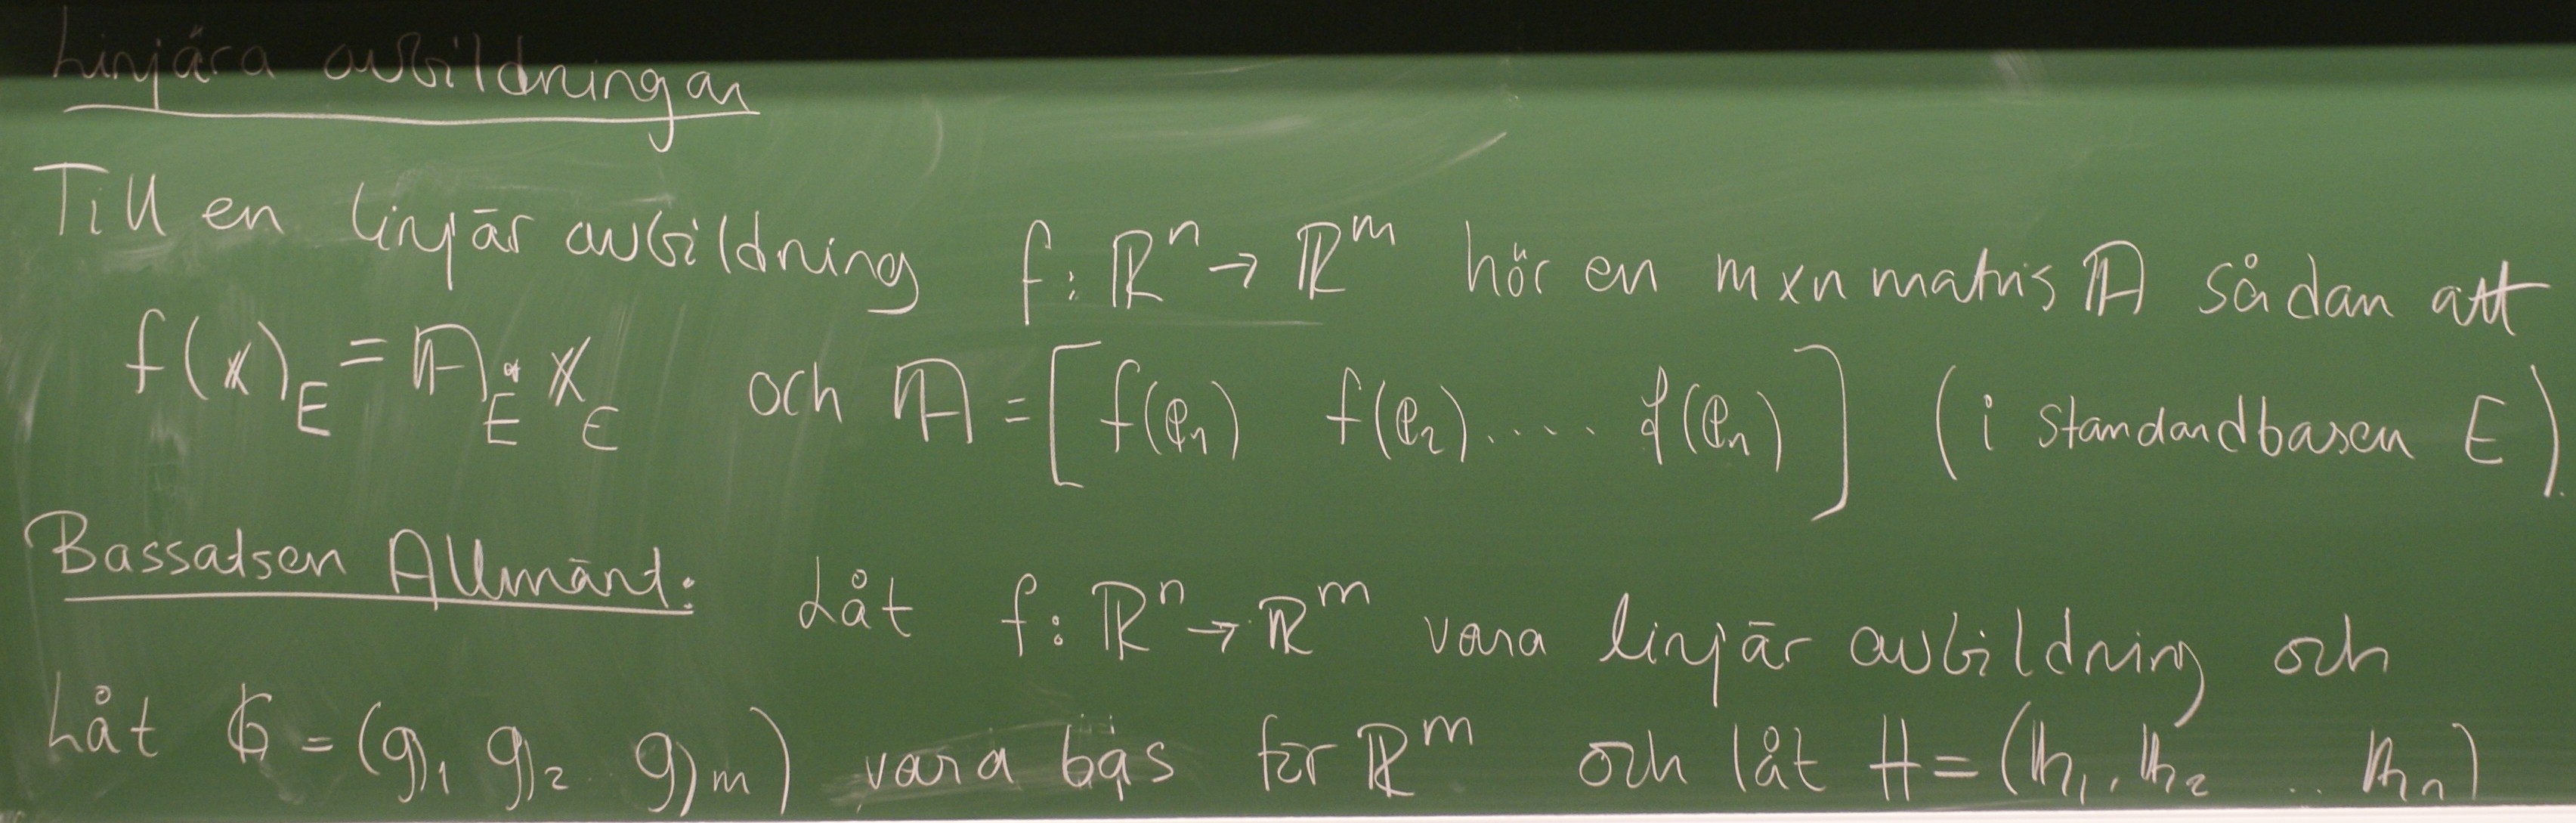 Linjära avbildningar
Till en linjär avbildning f: ℝⁿ → ℝᵐ hör en m×n matris 𝔸 sådan att
f(𝕩)_E = 𝔸_E · 𝕩_E och 𝔸 = [f(𝕖₁) f(𝕖₂) ..... f(𝕖ₙ)] (i standardbasen E).
Bassatsen Allmänt: Låt f: ℝⁿ → ℝᵐ vara linjär avbildning och
Låt 𝔾 = (g₁ g₂ .. gₘ) vara bas för ℝᵐ och låt H = (𝕙₁, 𝕙₂ .. 𝕙ₙ)